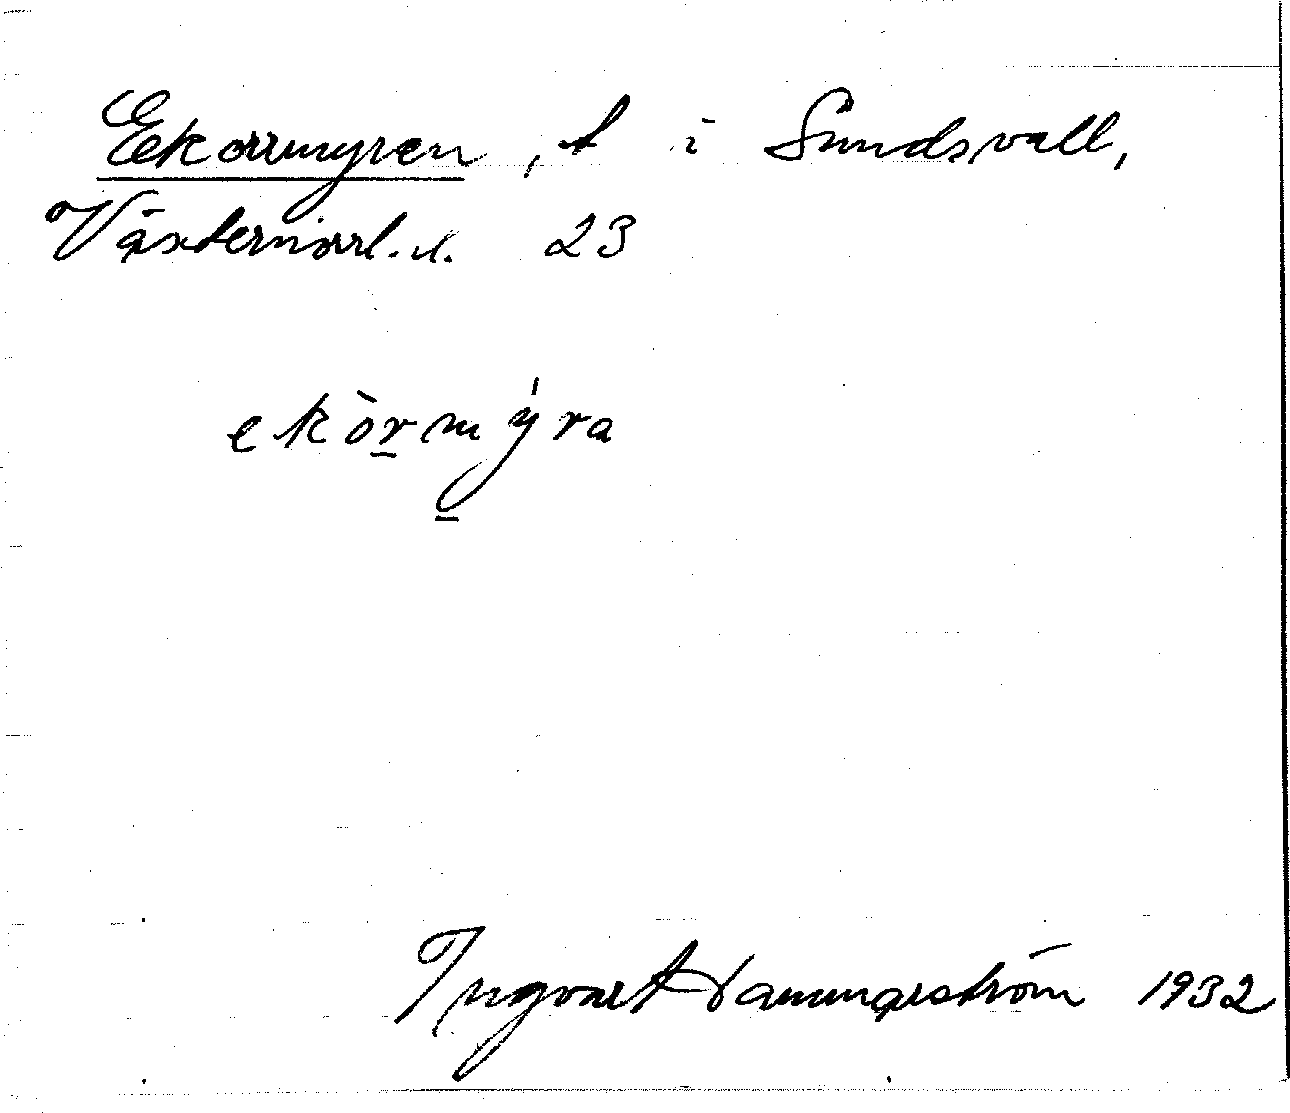 Ekorrmyren, t i Sundsvall,
Västernorrl. l. 23
ekòrmýra
Ingvar Hammarström 1932